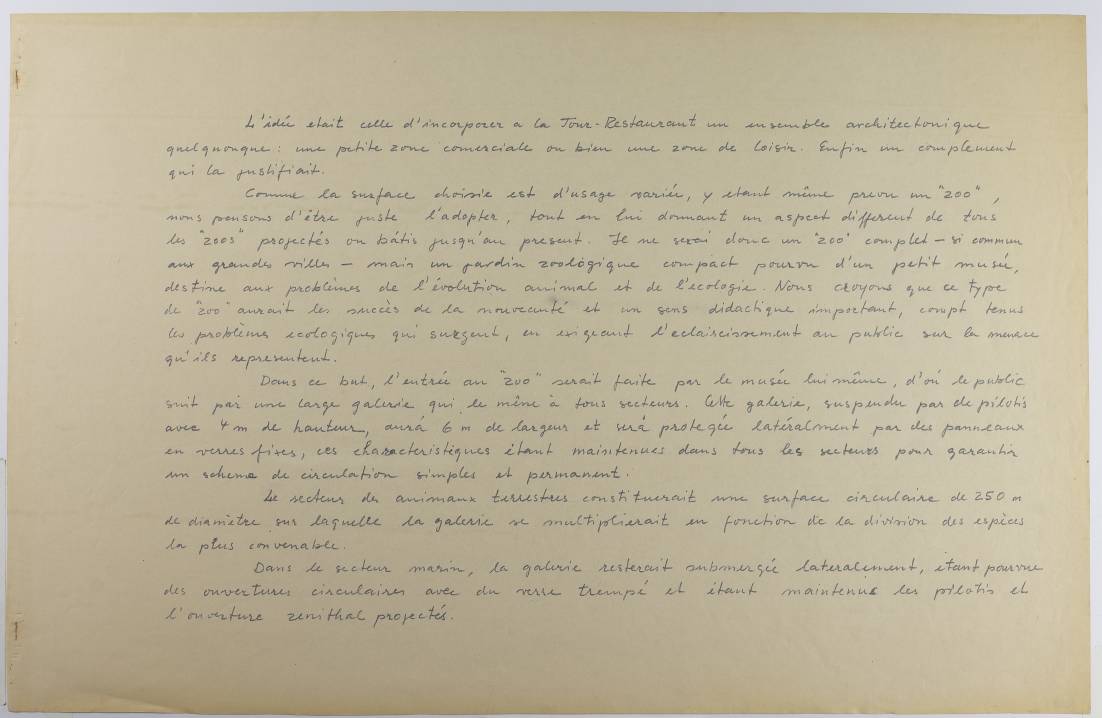 L'idée etait celle d'incorporer a la Tour-Restaurant un ensemble architectonique
quelqnonque : une petite zone comerciale ou bien une zone de loisir. Enfin un complement
qui la justifiait.
Comme la surface choisie est d'usage variée, y etant même prevu un "zoo",
nous pensons d'être juste l'adopter, tout en lui donnant un aspect different de tous
les "zoos" projectés ou bâtis jusqu'au present. Il ne serai donc un "zoo" complet — si commun
aux grandes villes — main un jardin zoològique compact pourvu d'un petit musée,
destine aux problèmes de l'évolution animal et de l'ecologie. Nous croyons que ce type
de "zoo" aurait les succès de la nouveauté et un sens didactique important, compt tenus
les problèmes ecologiques qui surgent, en exigeant l'eclaircissement au public sur la menace
qu'ils representent.
Dans ce but, l'entrée au "zoo" serait faite par le musée lui même, d'où le public
suit par une large galerie qui le mêne à tous secteurs. Cette galerie, suspendu par de pilotis
avec 4 m de hauteur, aurá 6 m de largeur et será protegée latéralment par des panneaux
en verres fixes, ces characteristiques étant maintenues dans tous les secteurs pour garantir
un schema de circulation simples et permanent.
Le secteur des animaux terrestres constituerait une surface circulaire de 250 m
de diamètre sur laquelle la galerie se multiplierait en fonction de la division des espèces
la plus convenable.
Dans le secteur marin, la galerie resterait submergée lateralement, étant pourvue
des ouvertures circulaires avec du verre trempé et étant maintenue les pilotis et
l'ouverture zenithal projectés.